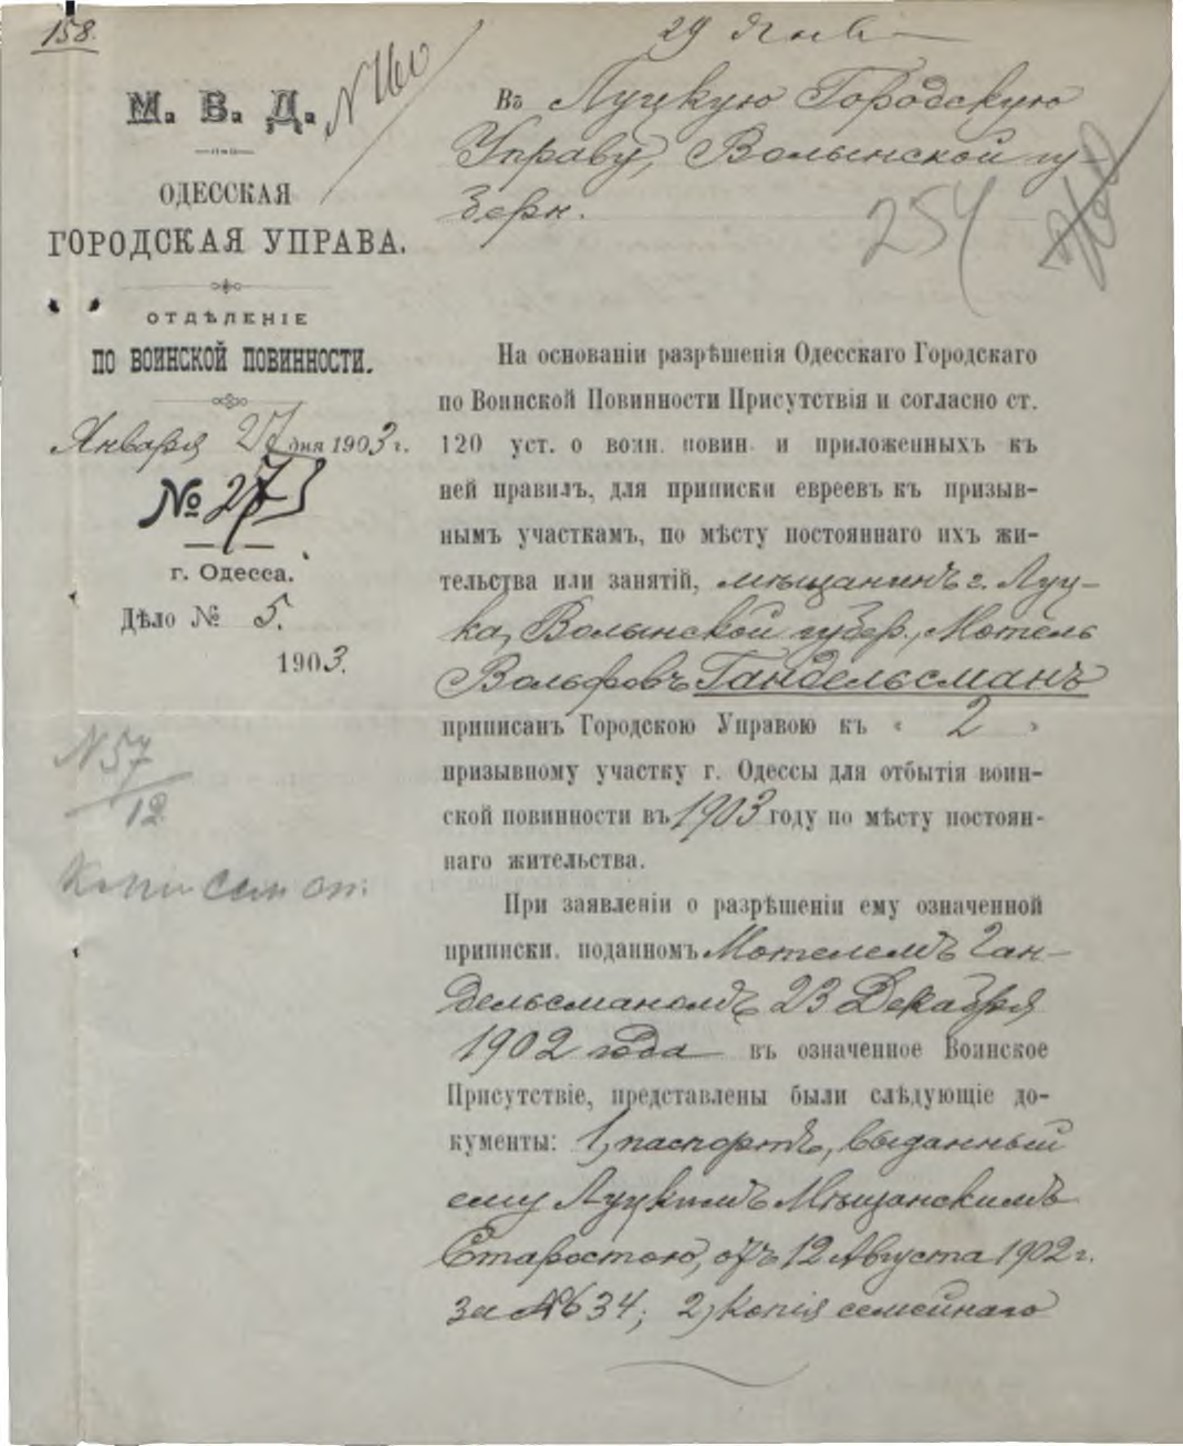 158.
29 Янв
М. В. Д.
N 160
ОДЕССКАЯ
ГОРОДСКАЯ УПРАВА.
ОТДѢЛЕНІЕ
ПО ВОИНСКОЙ ПОВИННОСТИ.
Января 27 дня 1903 г.
№ 275
г. Одесса.
Дѣло № 5.
1903.
N 57
12
Въ Луцкую Городскую
Управу, Волынской гу-
берн.
254
На основаніи разрѣшенія Одесскаго Городскаго
по Воинской Повинности Присутствія и согласно ст.
120 уст. о воин. повин. и приложенныхъ къ
ней правилъ, для приписки евреевъ къ призыв-
нымъ участкамъ, по мѣсту постояннаго ихъ жи-
тельства или занятій, мѣщанинъ г. Луц-
ка, Волынской губер., Мотель
Вольфовъ Гандельсманъ
приписанъ Городскою Управою къ « 2 »
призывному участку г. Одессы для отбытія воин-
ской повинности въ 1903 году по мѣсту постоян-
наго жительства.
При заявленіи о разрѣшеніи ему означенной
приписки, поданномъ Мотелемъ Ган-
дельсманомъ 23 Декабря
1902 года въ означенное Воинское
Присутствіе, представлены были слѣдующіе до-
кументы: 1, паспортъ, выданный
ему Луцкимъ Мѣщанскимъ
Старостою, отъ 12 Августа 1902 г.
за № 634; 2) копія семейнаго